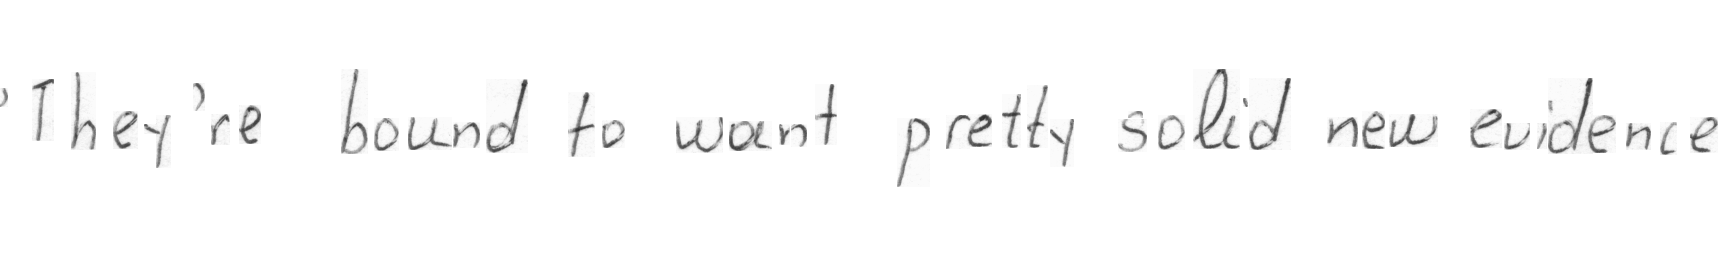 'They're bound to want pretty solid new evidence